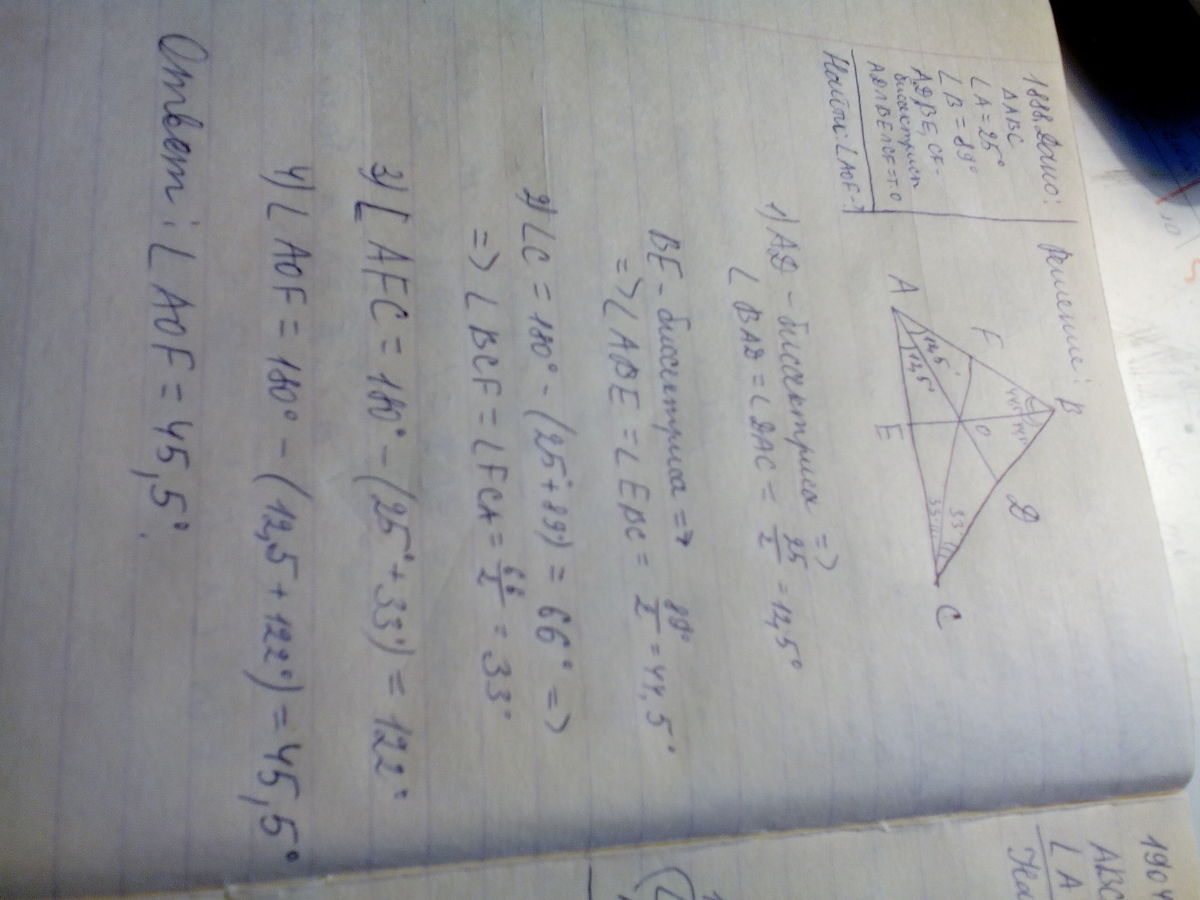 1888. Дано:
△ABC
∠A = 25°
∠B = 89°
AD, BE, CF -
биссектрисы
AD∩BE∩CF = т.O
Найти: ∠AOF - ?
Решение:
B
F
D
44,5°
O
A
12,5°
12,5°
E
33°
33°
C
1) AD - биссектриса =>
∠BAD = ∠DAC = 25/2 = 12,5°
BE - биссектриса =>
=> ∠ABE = ∠EBC = 89°/2 = 44,5°
2) ∠C = 180° - (25° + 89°) = 66° =>
=> ∠BCF = ∠FCA = 66/2 = 33°
3) ∠AFC = 180° - (25° + 33°) = 122°
4) ∠AOF = 180° - (12,5 + 122°) = 45,5°
Ответ: ∠AOF = 45,5°.
1904
ABC
∠A